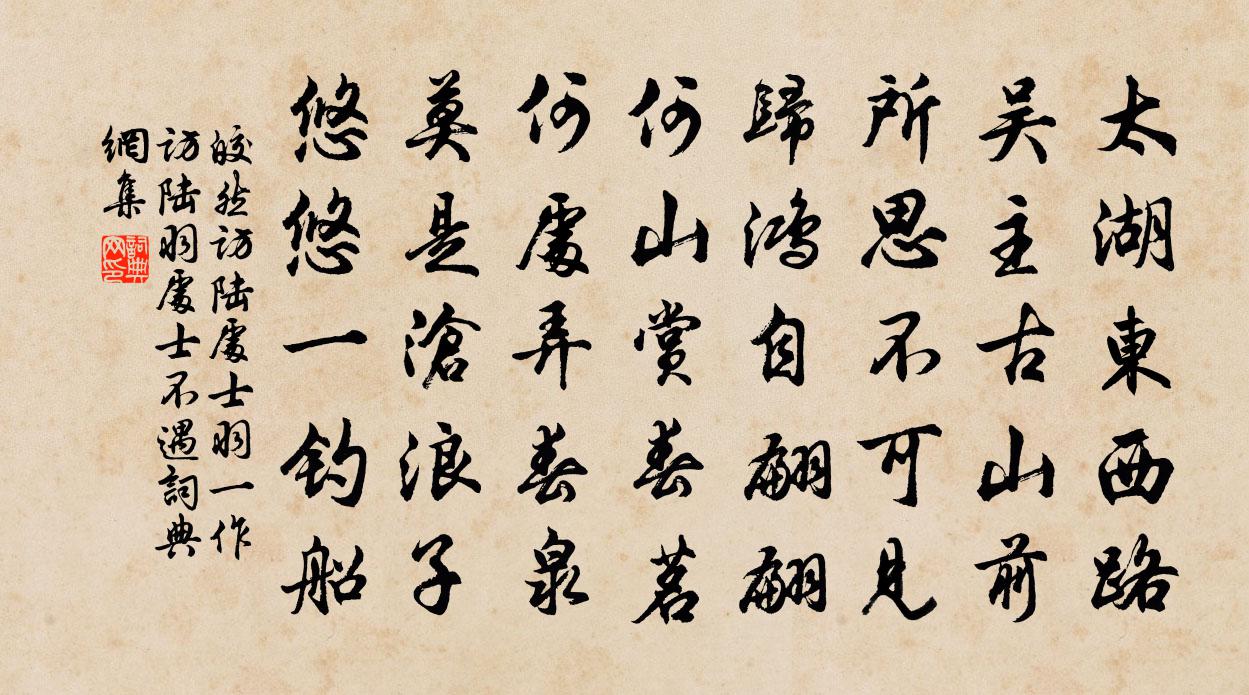 太湖東西路
吴主古山前
所思不可見
歸鴻自翩翩
何山賞春茗
何處弄春泉
莫是滄浪子
悠悠一釣船
皎然访陆處士羽一作
访陆羽處士不遇詞典
網集
詞典
网印